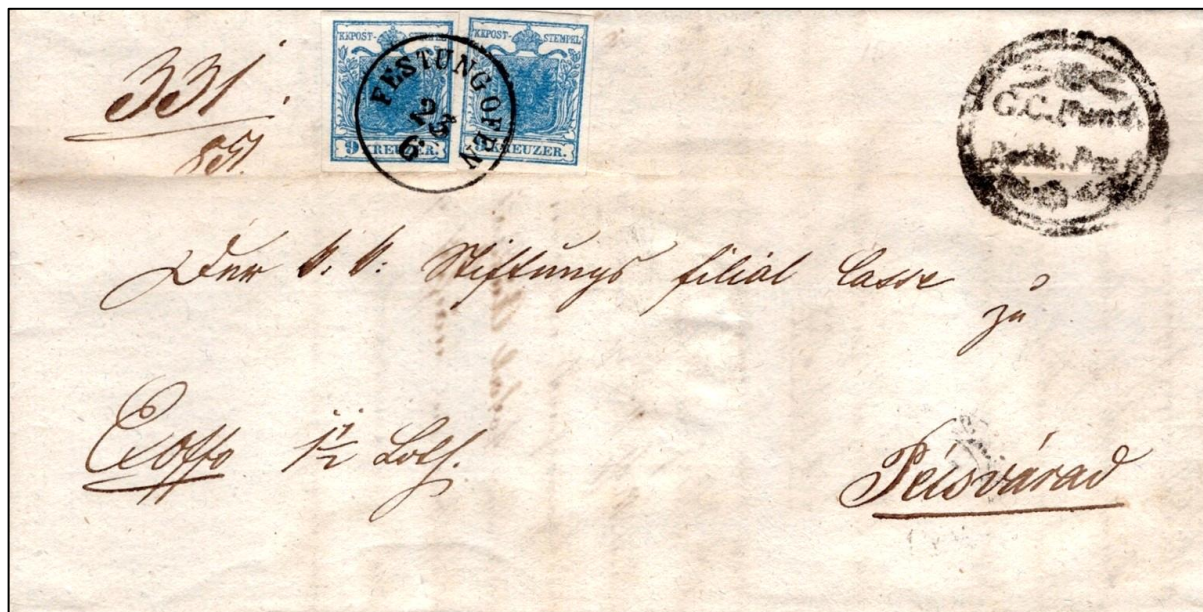 331.
851.
KKPOST-STEMPEL
9 KREUZER.
KKPOST-STEMPEL
9 KREUZER.
FESTUNG OFEN
23
6
G.C. Fund.
Der k. k. Stiftungs filial Casse
zu
Exoffo 1½ Loth.
Pécsvárad